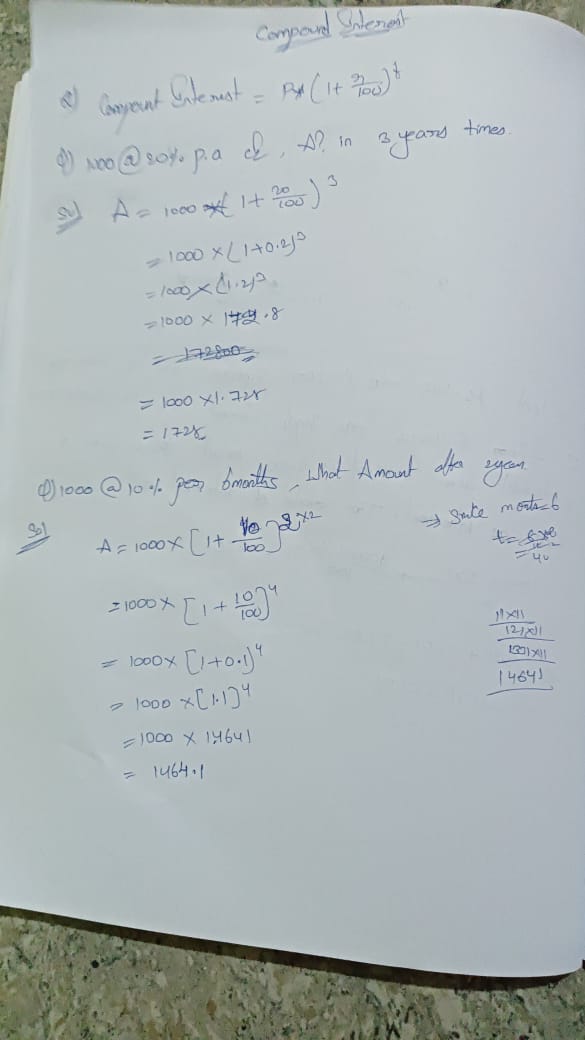 Compound Interest
Q) Compount Interest = P× (1 + r/100)^t
Q) 1000 @ 20% p.a CI, A? in 3 years times.
Sol A = 1000 × (1 + 20/100)^3
= 1000 × (1+0.2)^3
= 1000 × (1.2)^3
= 1000 × 172.8
= 172800
= 1000 × 1.728
= 1728
Q) 1000 @ 10% per 6 months, What Amount after 2 year.
Sol ⇒ months = 6
A = 1000 × [1 + 10/100]^2×2
t =
= 1000 × [1 + 10/100]^4
11×11
= 1000 × [1+0.1]^4
121×11
1331×11
= 1000 × [1.1]^4
14641
= 1000 × 1.4641
= 1464.1